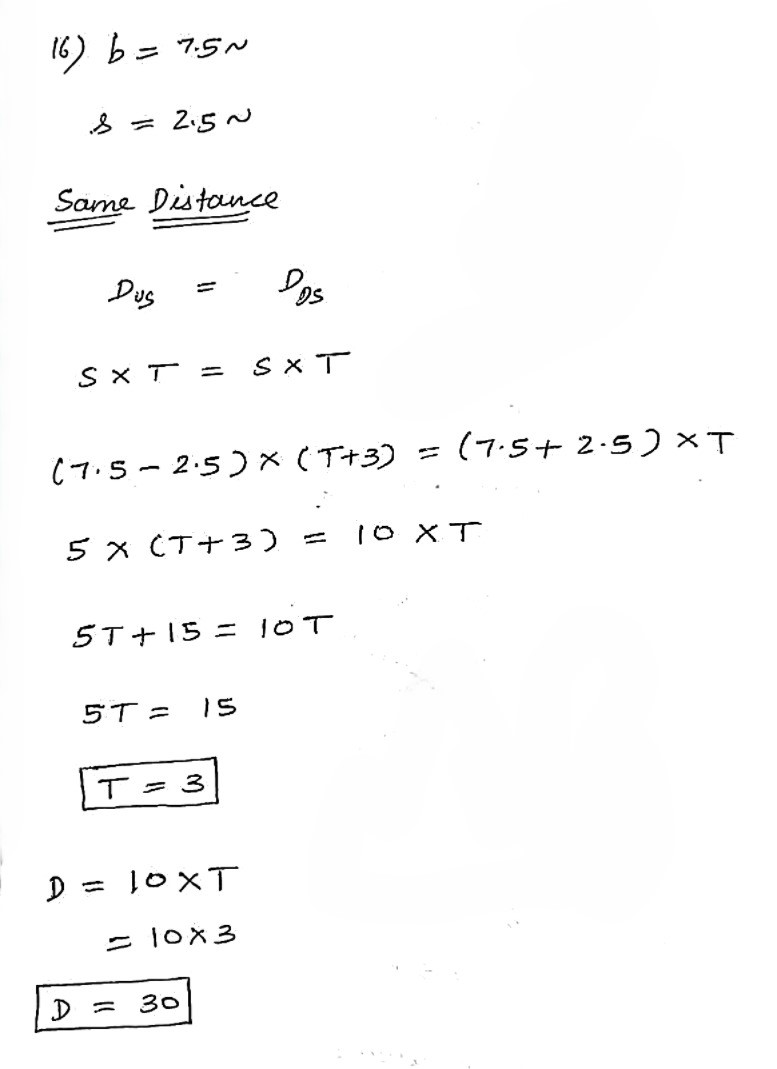 16) b = 7.5~
s = 2.5~
Same Distance
Dus = DDS
S × T = S × T
(7.5 - 2.5) × (T+3) = (7.5 + 2.5) × T
5 × (T+3) = 10 × T
5T + 15 = 10T
5T = 15
T = 3
D = 10 × T
= 10 × 3
D = 30